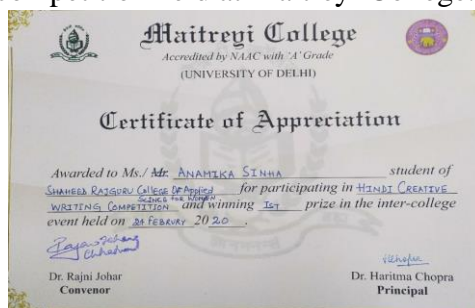 Maitreyi College
Accredited by NAAC with 'A' Grade
(UNIVERSITY OF DELHI)
Certificate of Appreciation
Awarded to Ms./ Mr. ANAMIKA SINHA student of
SHAHEED RAJGURU COLLEGE OF APPLIED SCIENCE FOR WOMEN for participating in HINDI CREATIVE
WRITING COMPETITION and winning IST prize in the inter-college
event held on FEBRUARY 2020.
Dr. Rajni Johar
Convenor
Dr. Haritma Chopra
Principal